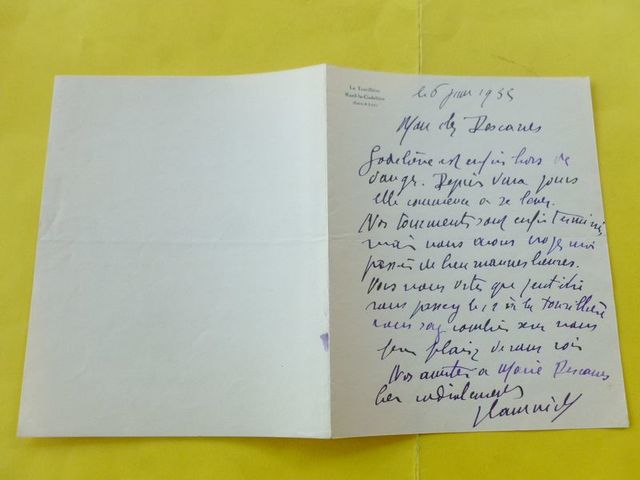 La Tourillière
Rueil-la-Gadelière
(Eure & Loir)
le 6 juin 1955
Mon cher Descaves
Godelière est enfin hors de
danger. Depuis deux jours
elle commence à se lever.
Nos tourments sont enfin terminés
mais nous avons
passés de bien mauvaises heures.
Vous nous dites que peut être
vous passerez le 12 à la Tourillière
vous savez combien nous
fera plaisir de vous voir
Nos amitiés à Marie Descaves
bien cordialement
Vlaminck